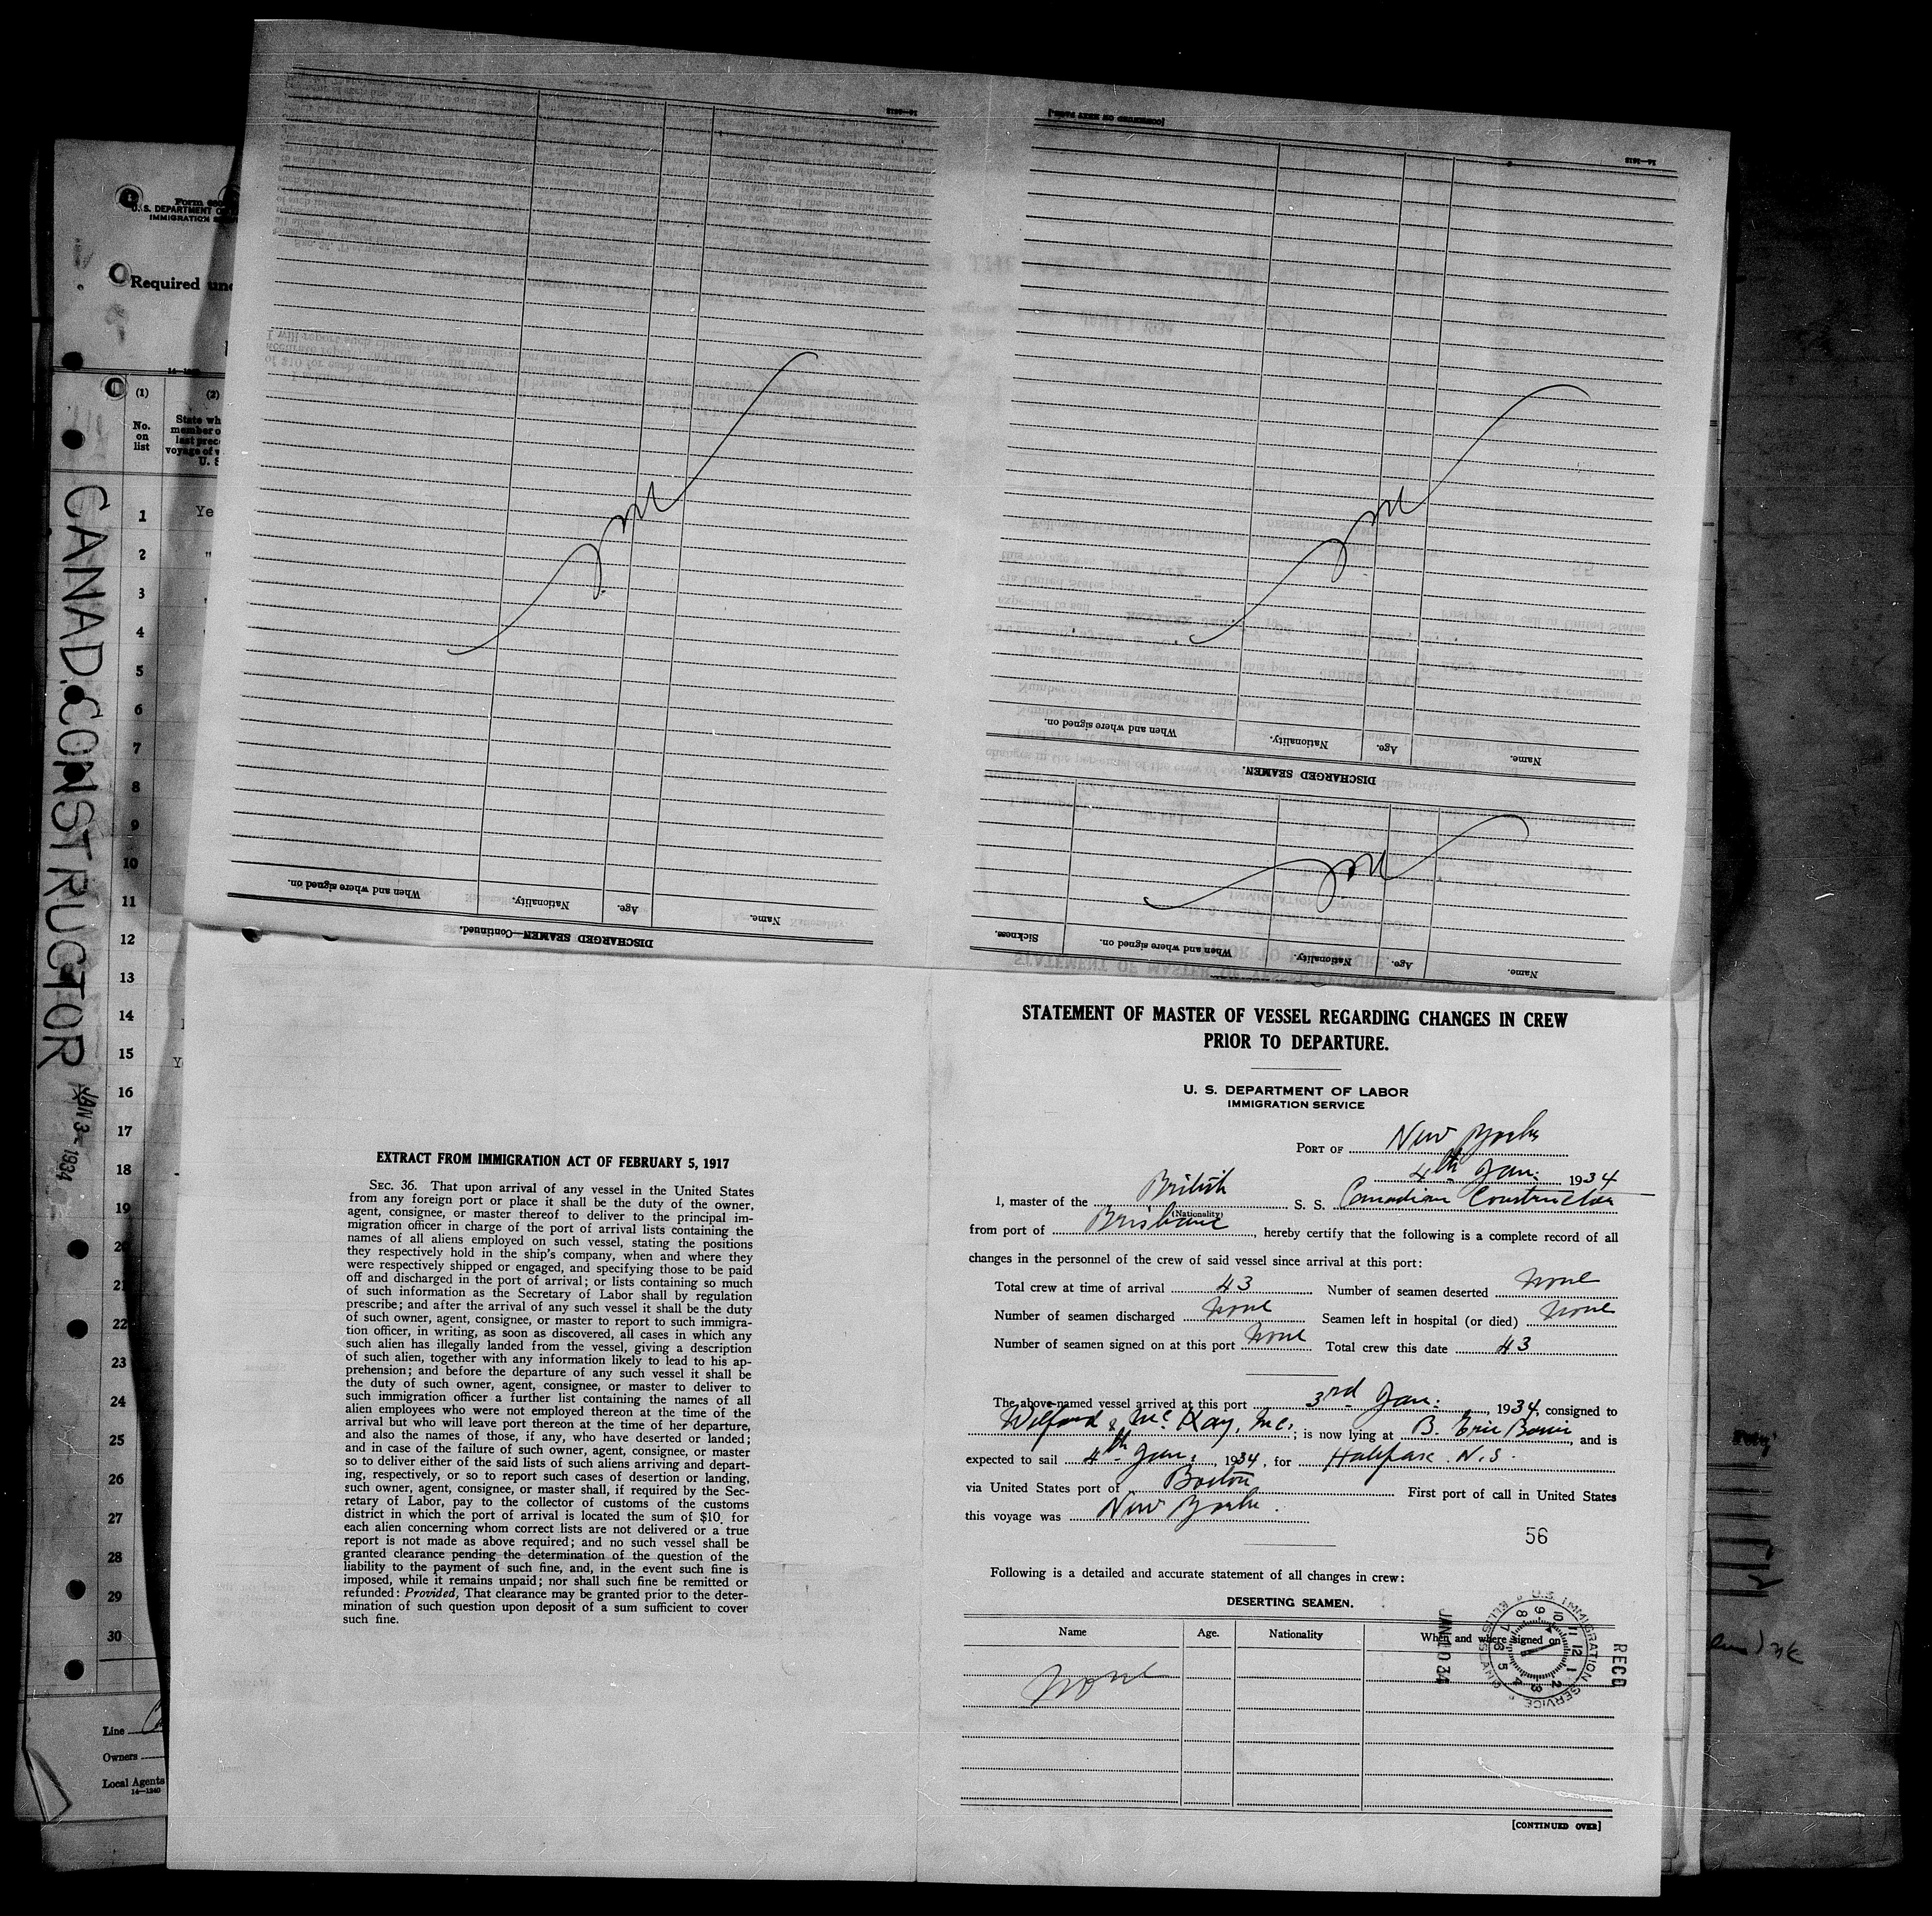 Form 680
U. S. DEPARTMENT O
IMMIGRATION S
Required und
(1)
(2)
No.
on
list
State wh
member o
last prec
voyage of v
U. S
1
Ye
2
"
3
4
5
6
7
8
9
10
11
12
13
14
15
Y
16
17
18
19
20
21
22
23
24
25
26
27
28
29
30
CANAD. CONSTRUCTOR
JAN 3-1934
Line
Owners
Local Agents
14—1240
DISCHARGED SEAMEN—Continued.
Name.
Age.
Nationality.
When and where signed on.
None
[CONTINUED ON NEXT PAGE.]
Name.
Age.
Nationality.
When and where signed on.
Sickness.
None
DISCHARGED SEAMEN.
Name.
Age.
Nationality.
When and where signed on.
None
EXTRACT FROM IMMIGRATION ACT OF FEBRUARY 5, 1917
SEC. 36. That upon arrival of any vessel in the United States
from any foreign port or place it shall be the duty of the owner,
agent, consignee, or master thereof to deliver to the principal im-
migration officer in charge of the port of arrival lists containing the
names of all aliens employed on such vessel, stating the positions
they respectively hold in the ship's company, when and where they
were respectively shipped or engaged, and specifying those to be paid
off and discharged in the port of arrival; or lists containing so much
of such information as the Secretary of Labor shall by regulation
prescribe; and after the arrival of any such vessel it shall be the duty
of such owner, agent, consignee, or master to report to such immigra-
tion officer, in writing, as soon as discovered, all cases in which any
such alien has illegally landed from the vessel, giving a description
of such alien, together with any information likely to lead to his ap-
prehension; and before the departure of any such vessel it shall be
the duty of such owner, agent, consignee, or master to deliver to
such immigration officer a further list containing the names of all
alien employees who were not employed thereon at the time of the
arrival but who will leave port thereon at the time of her departure,
and also the names of those, if any, who have deserted or landed;
and in case of the failure of such owner, agent, consignee, or master
so to deliver either of the said lists of such aliens arriving and depart-
ing, respectively, or so to report such cases of desertion or landing,
such owner, agent, consignee, or master shall, if required by the Sec-
retary of Labor, pay to the collector of customs of the customs
district in which the port of arrival is located the sum of $10. for
each alien concerning whom correct lists are not delivered or a true
report is not made as above required; and no such vessel shall be
granted clearance pending the determination of the question of the
liability to the payment of such fine, and, in the event such fine is
imposed, while it remains unpaid; nor shall such fine be remitted or
refunded: Provided, That clearance may be granted prior to the deter-
mination of such question upon deposit of a sum sufficient to cover
such fine.
STATEMENT OF MASTER OF VESSEL REGARDING CHANGES IN CREW
PRIOR TO DEPARTURE.
U. S. DEPARTMENT OF LABOR
IMMIGRATION SERVICE
PORT OF New York
4th Jan: 1934
I, master of the British S. S. Canadian Constructor
(Nationality)
from port of Brisbane, hereby certify that the following is a complete record of all
changes in the personnel of the crew of said vessel since arrival at this port:
Total crew at time of arrival 43 Number of seamen deserted None
Number of seamen discharged None Seamen left in hospital (or died) None
Number of seamen signed on at this port None Total crew this date 43
The above-named vessel arrived at this port 3rd Jan: 1934, consigned to
& McKay, Inc.; is now lying at B. Erie Basin, and is
expected to sail 4th Jan: 1934, for Halifax. N.S.
via United States port of Boston First port of call in United States
this voyage was New York.
56
Following is a detailed and accurate statement of all changes in crew:
DESERTING SEAMEN.
Name
Age.
Nationality
When and where signed on
None
RECD
U.S. IMMIGRATION SERVICE
ELLIS ISLAND
JAN 10 34
[CONTINUED OVER]